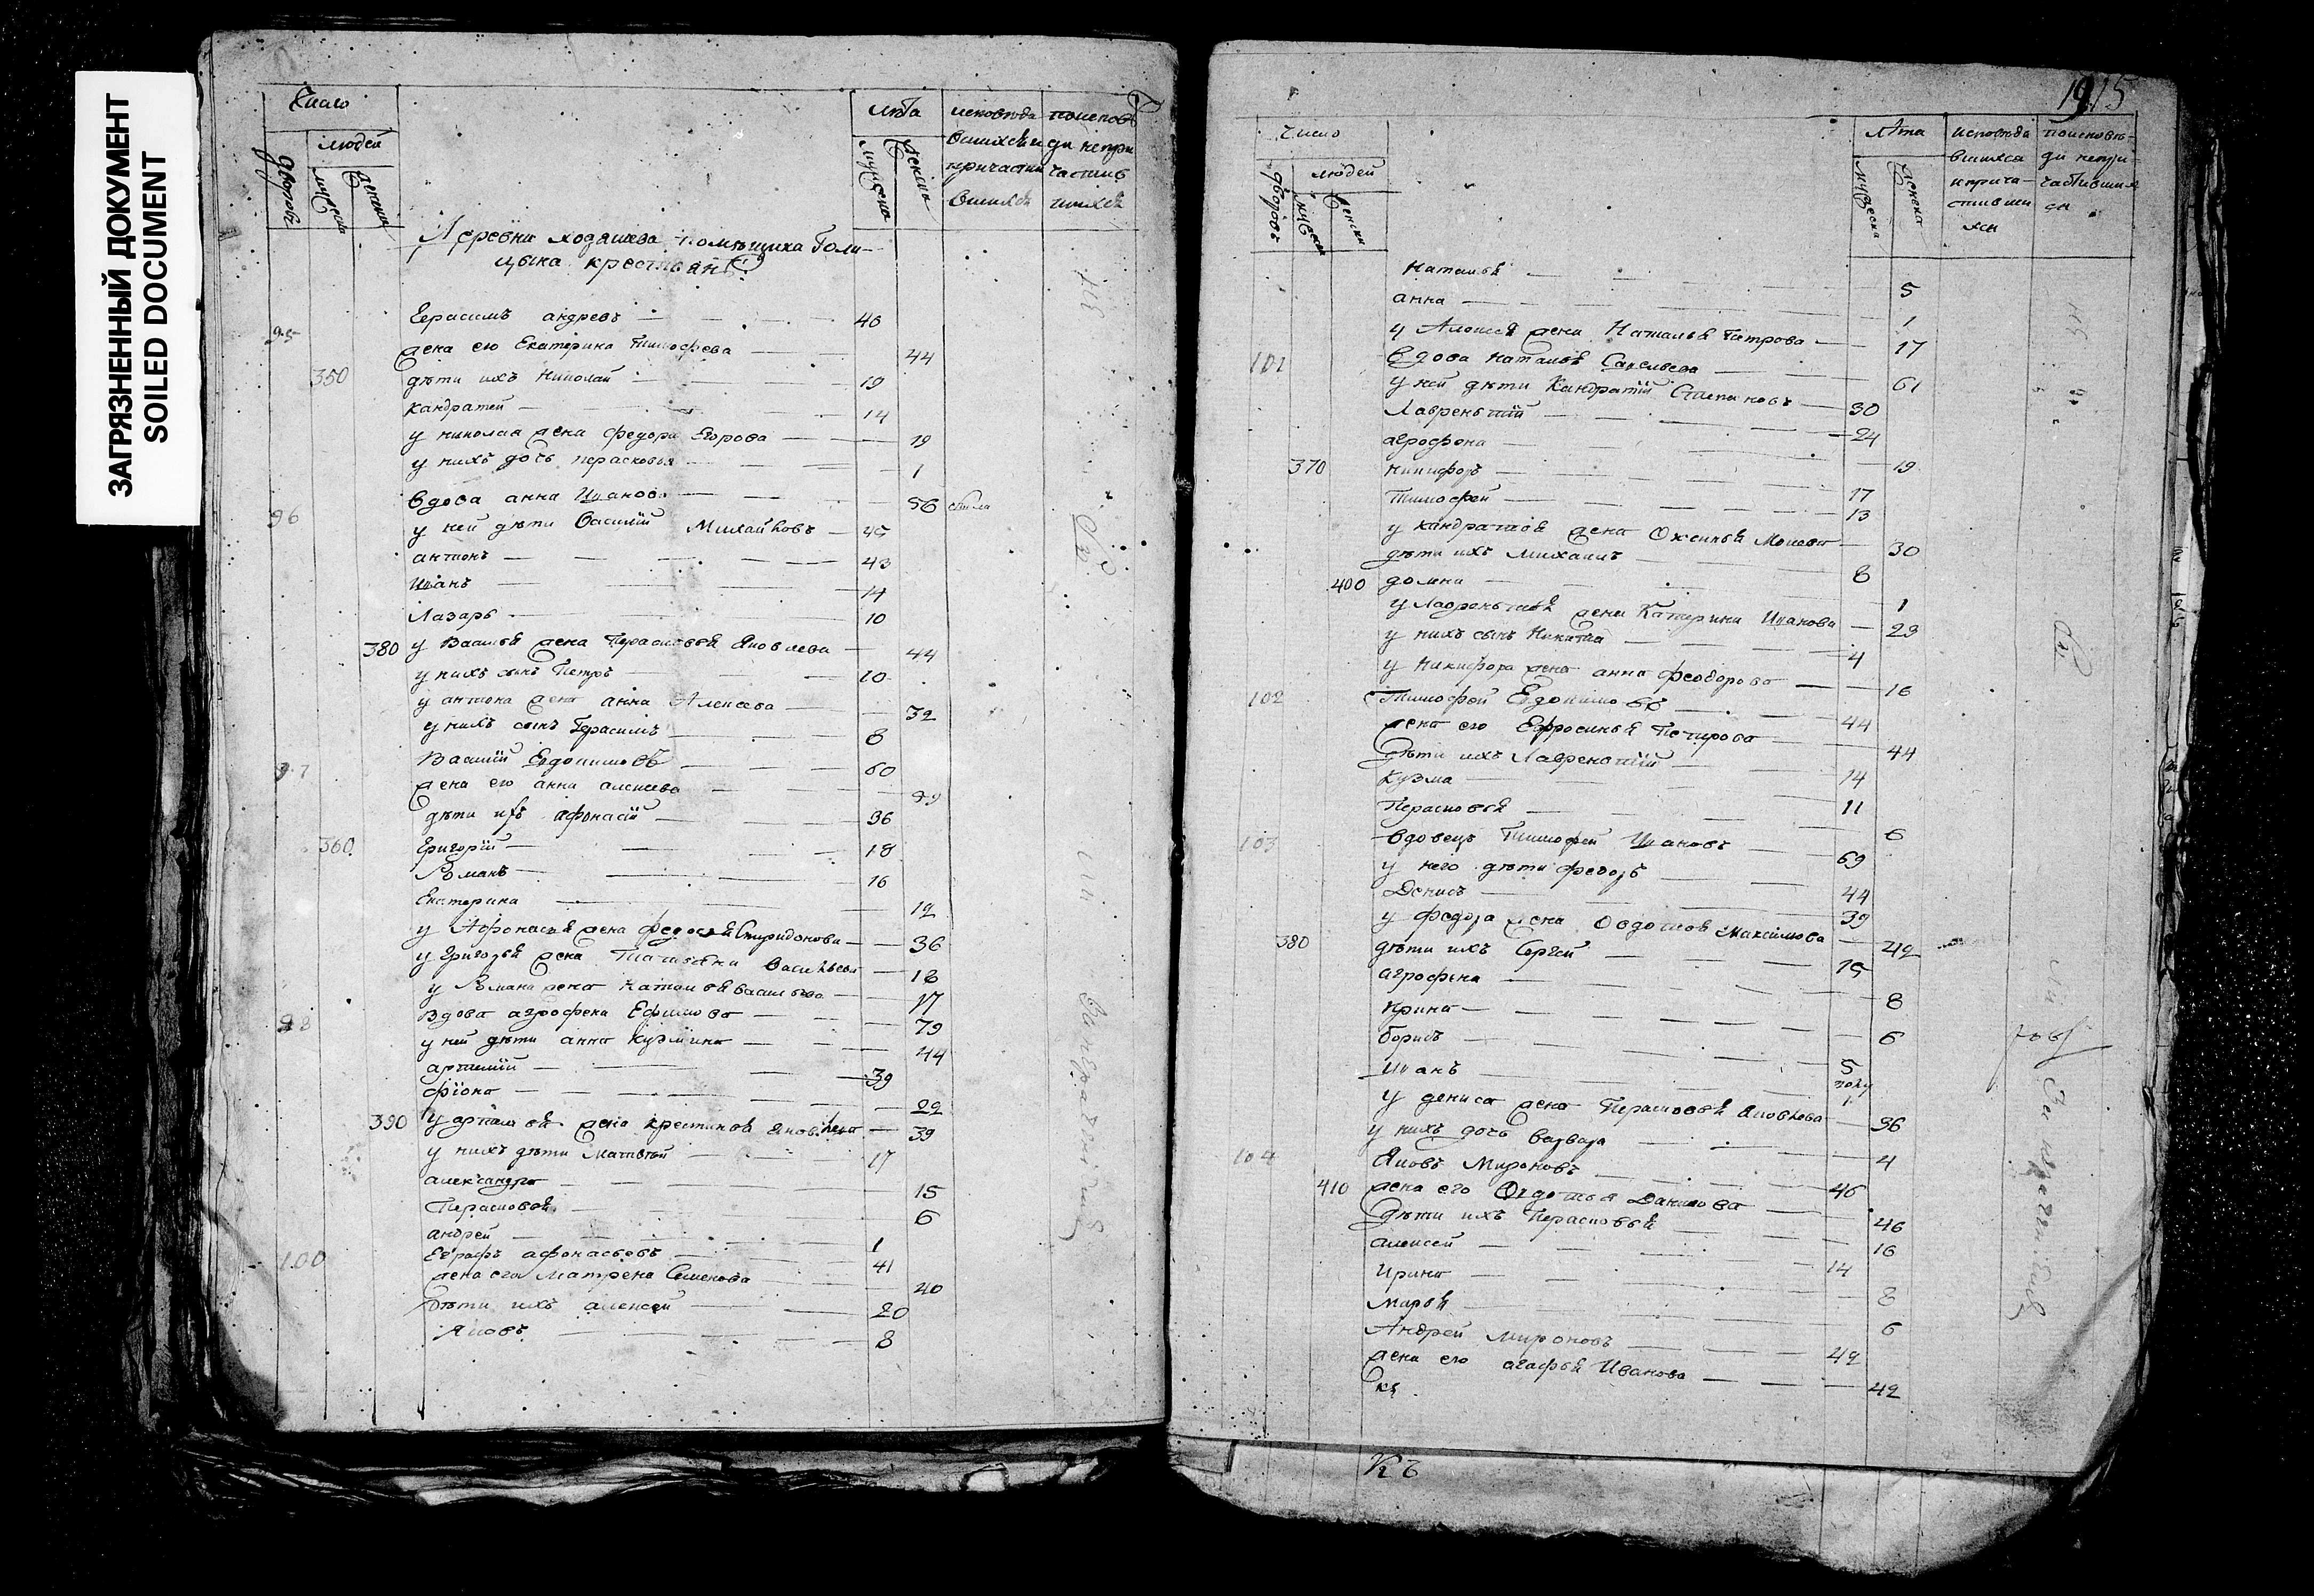 ЗАГРЯЗНЕННЫЙ ДОКУМЕНТ
SOILED DOCUMENT
Число
людей
лѣта
дворовъ
мужеска
женска
мужеска
женска
исповѣда
вшихся и
причасти
вшихся
поиспов
ди непри
частив
шихся
Деревни Ходяшева помѣщика Голи-
цына крестьянъ
95 Герасимъ андревъ 46
жена его Екатерина Тимофѣева 44
350 дѣти ихъ Николай 19
Кандратей 14
у николая жена федора Егорова 19
у нихъ дочь парасковья 1
96 вдова анна Иванова 56
у ней дѣти Василий Михайловъ 45
антонъ 43
Иванъ 14
Лазарь 10
380 у Василья жена Парасковья Яковлева 44
у нихъ сынъ Петръ 10
у антона жена анна Алексеева 32
у нихъ сынъ Герасимъ 8
97 Василий Евдокимовъ 60
жена его анна алексеева
дѣти ихъ афонасий 36
360 Григорий 18
Романъ 16
Екатерина 12
у Афонасья жена федосья Спиридонова 36
у Григорья жена Татьяна Васильева 18
у Романа жена наталья васильева 17
98 вдова агрофена Ефимова 79
у ней дѣти анна Кузмина 44
артемий 39
фиона 22
390 у артемья жена крестинья Яковлева 39
у нихъ дѣти Матвей 17
александра 15
Парасковья 6
андрей 1
100 Евграфъ афонасьевъ 41
жена его Матрена Семенова 40
дѣти ихъ алексей 20
Яковъ 8
1915
Число
людей
дворовъ
женски
Лѣта
мужеска
женска
исповѣда
вшихся
и прича-
стивши
хся
поисповѣ-
ди непри-
частивши
ся
Наталья 5
анна 1
у Алексея жена Наталья Петрова 17
101 вдова наталья Савельева 61
у ней дѣти Кандратий Степановъ 30
Лаврентий 24
агрофена 19
370 никифоръ 17
Тимофей 13
у кандратья жена Оксинья Мосеева 30
дѣти ихъ михаилъ 8
400 домна 1
у Лаврентья жена Катерина Иванова 29
у нихъ сынъ Никита 4
у Никифора жена анна феодорова 16
102 Тимофей Евдокимовъ 44
жена его Ефросинья Петрова 44
дѣти ихъ Лаврентий 14
Кузма 11
Парасковья 6
103 вдовецъ Тимофей Ивановъ 69
у него дѣти федоръ 44
Денисъ 39
у федора жена Овдотья Максимова 42
380 дѣти ихъ Сергей 15
агрофена 8
Ирина 6
борисъ 5
Иванъ 1
у дениса жена Парасковья Яковлева 36
у нихъ дочь варвара 4
104 Яковъ Мироновъ 46
410 жена его Овдотья Данилова 46
дѣти ихъ Парасковья 16
алексей 14
Ирина 8
Марья 6
Андрей Мироновъ 42
жена его агафья Иванова 42